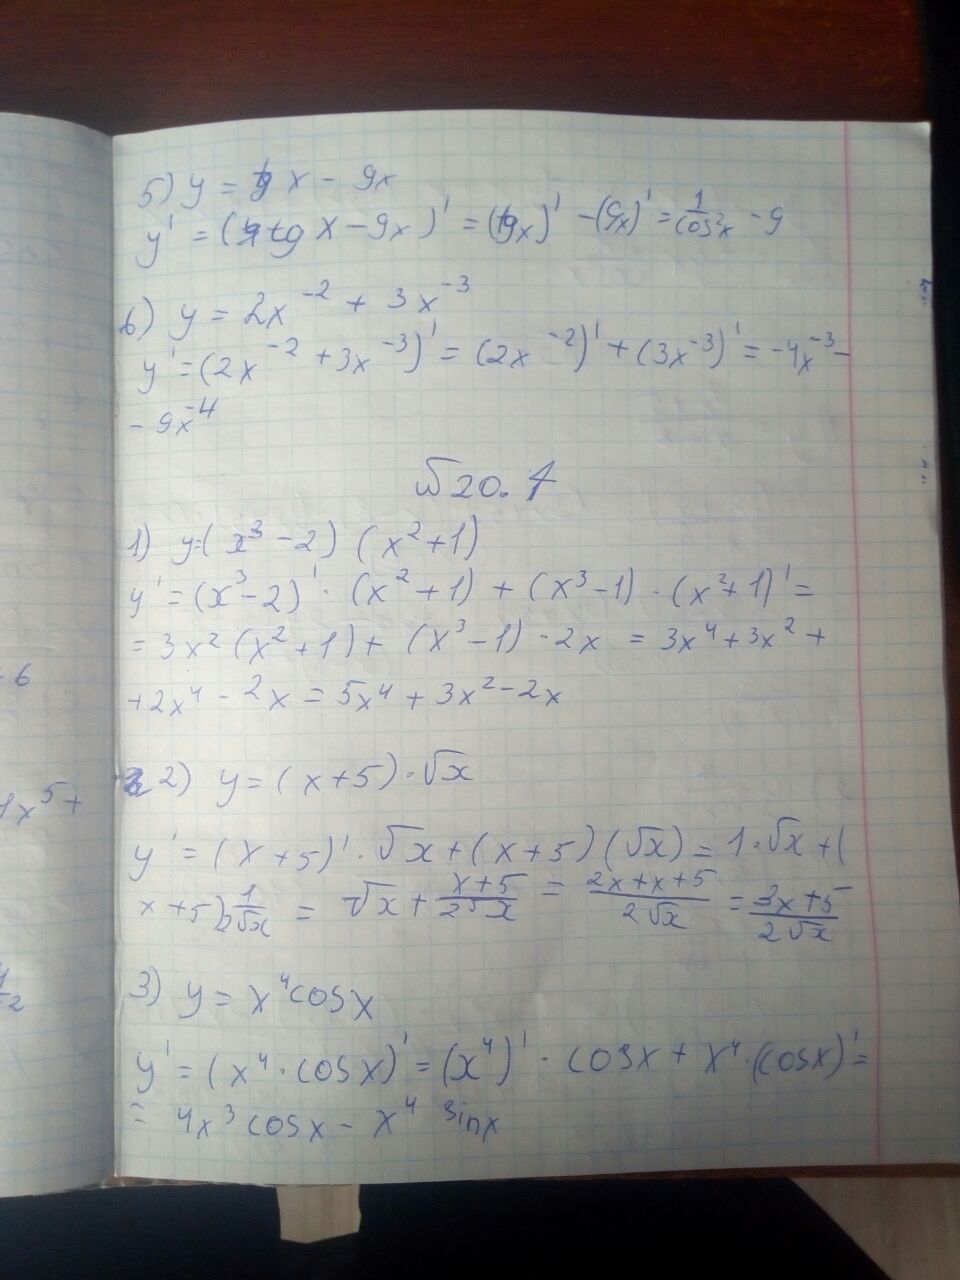 5) y = tg x - 9x
y' = (tg x - 9x)' = (tgx)' - (9x)' = 1/cos²x - 9
6) y = 2x⁻² + 3x⁻³
y' = (2x⁻² + 3x⁻³)' = (2x⁻²)' + (3x⁻³)' = -4x⁻³ -
- 9x⁻⁴
№20.7
1) y=(x³-2) (x²+1)
y' = (x³-2)' · (x²+1) + (x³-1) · (x²+1)' =
= 3x² (x²+1) + (x³-1) · 2x = 3x⁴ + 3x² +
+2x⁴ - 2x = 5x⁴ + 3x² - 2x
2) y = (x+5) · √x
y' = (x+5)' · √x + (x+5) (√x) = 1·√x + (
x+5) 1/2√x = √x + x+5/2√x = 2x+x+5/2√x = 3x+5/2√x
3) y = x⁴cosx
y' = (x⁴ · cosx)' = (x⁴)' · cosx + x⁴ · (cosx)' =
= 4x³ cosx - x⁴ sinx
6
1x⁵+